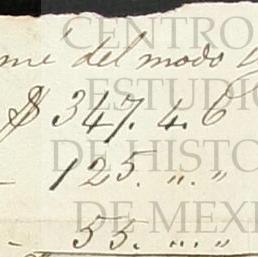 CENTRO
me del modo
ESTUDIO
$ 347. 4. 6
DE HISTO
125. „. „
DE MEXI
55. „. „